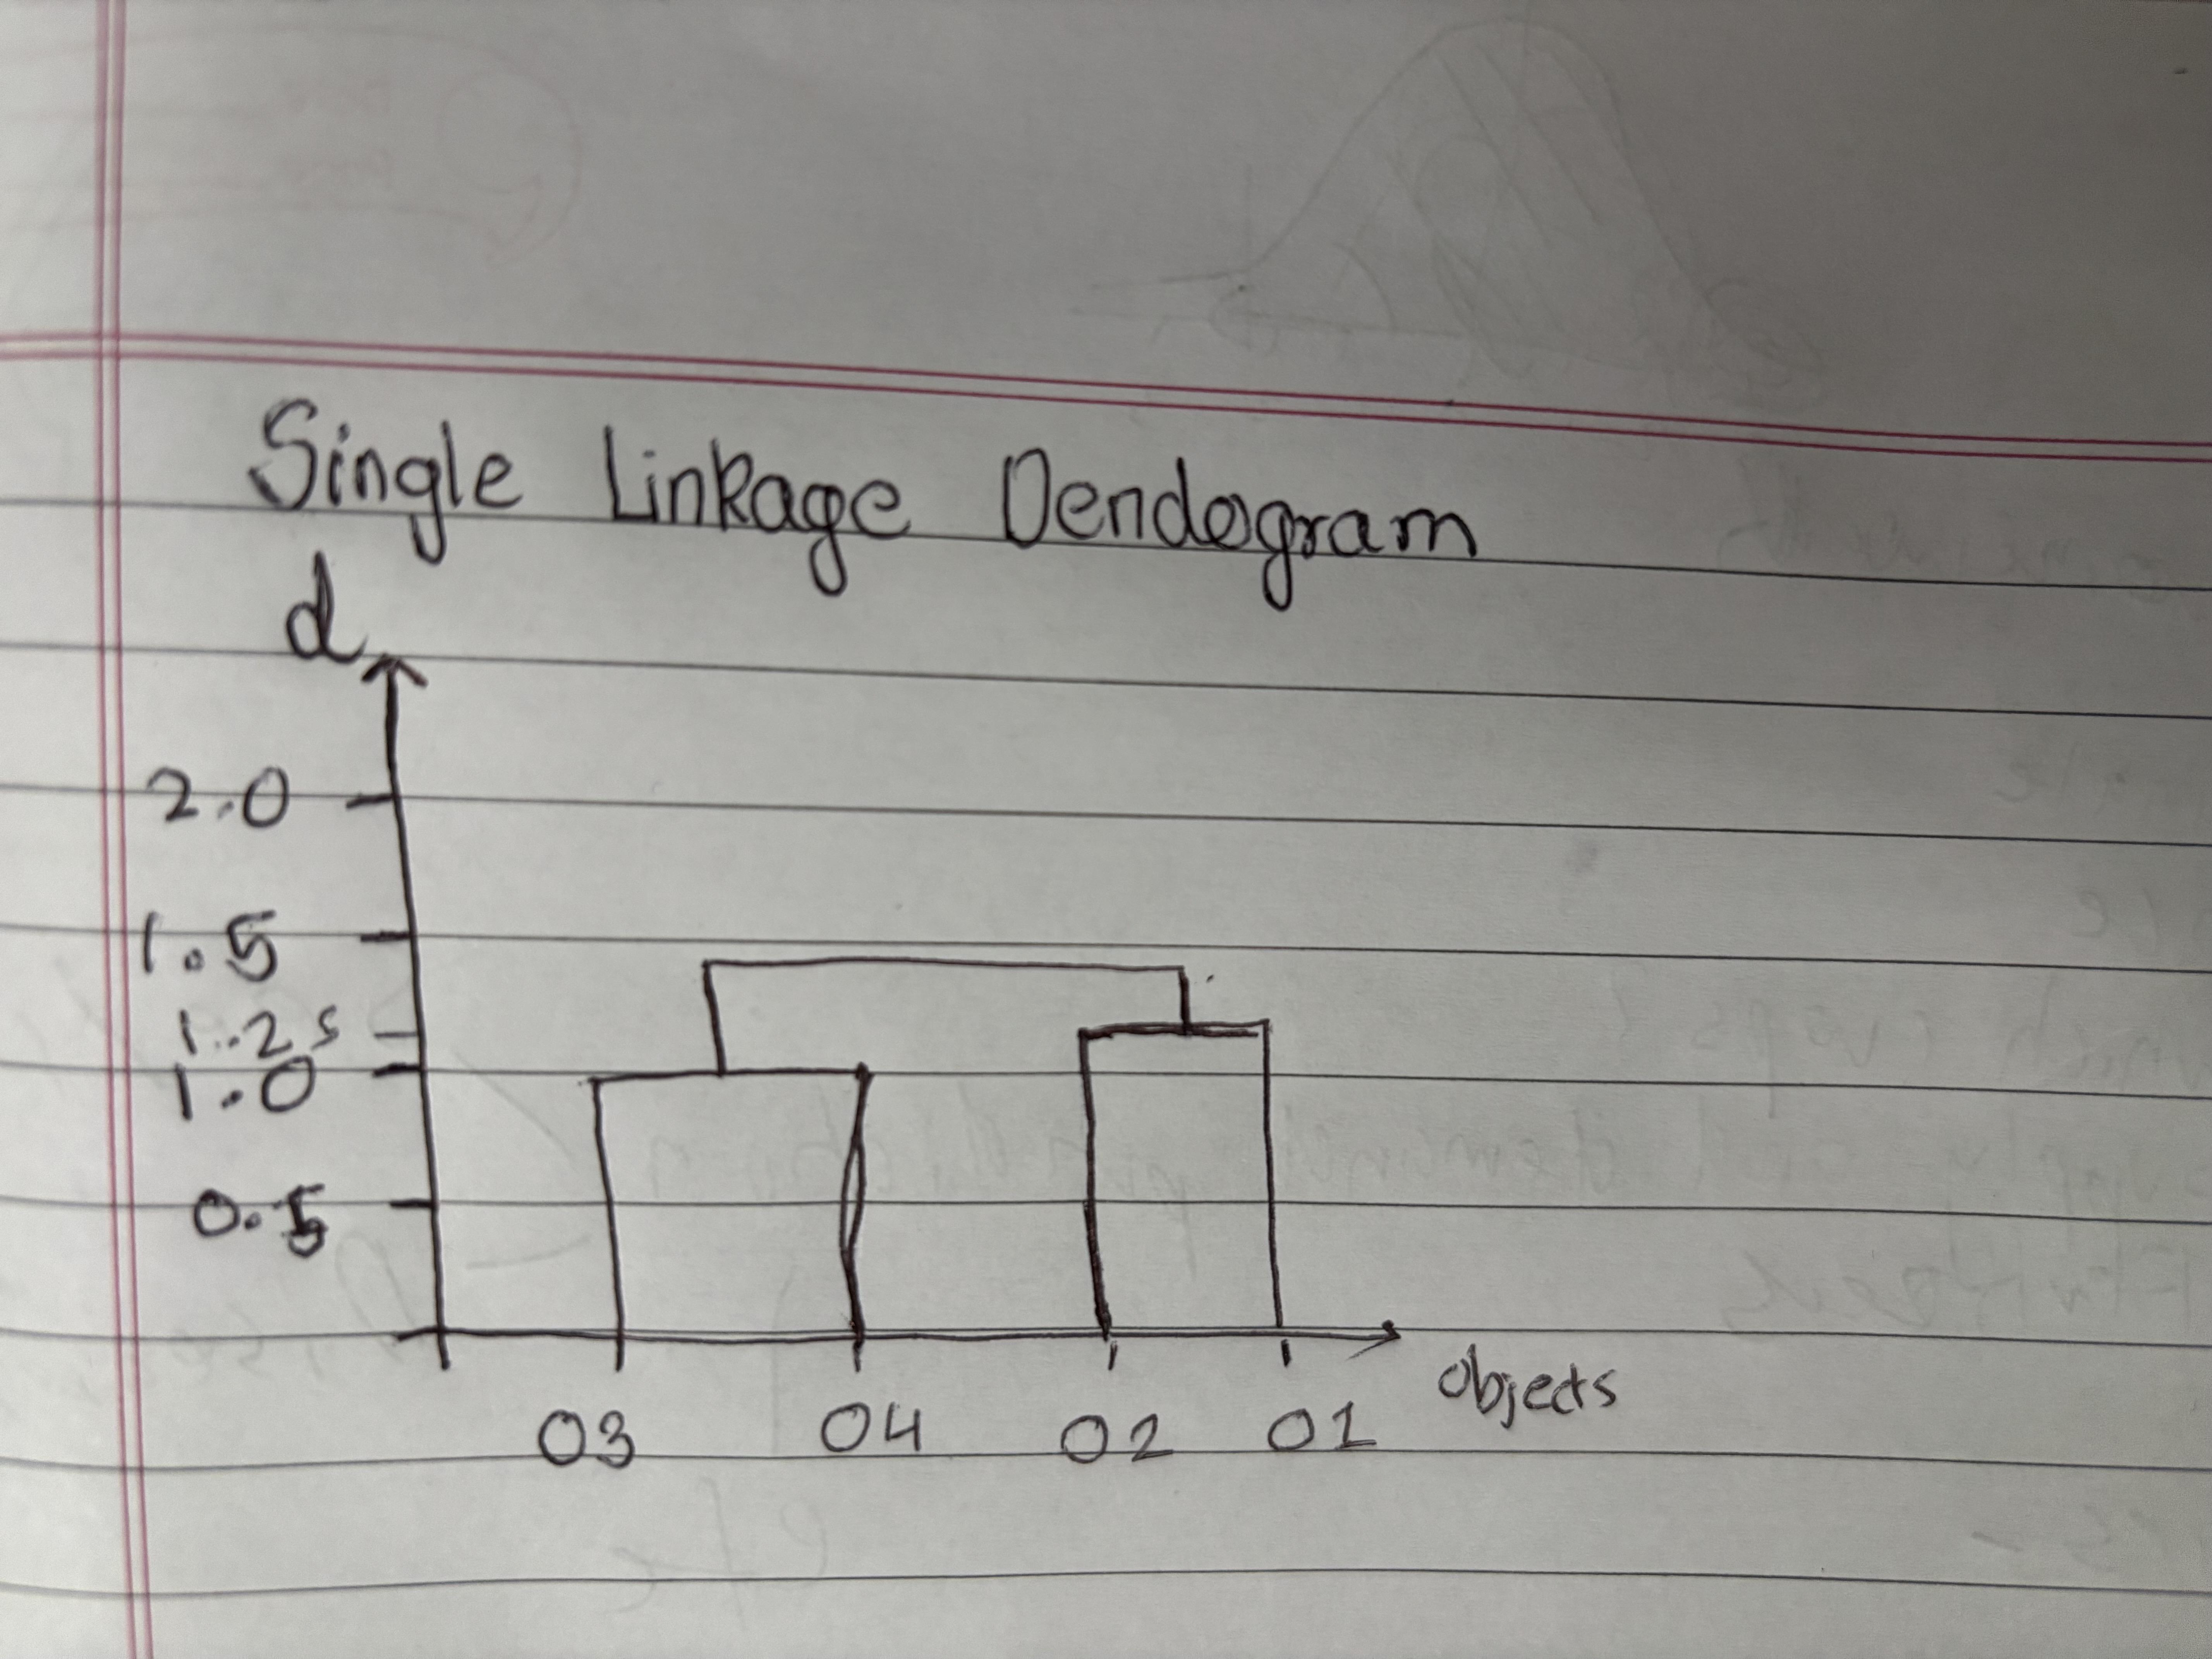 Single Linkage Dendogram
d
2.0
1.5
1.25
1.0
0.5
03 04 02 01 objects